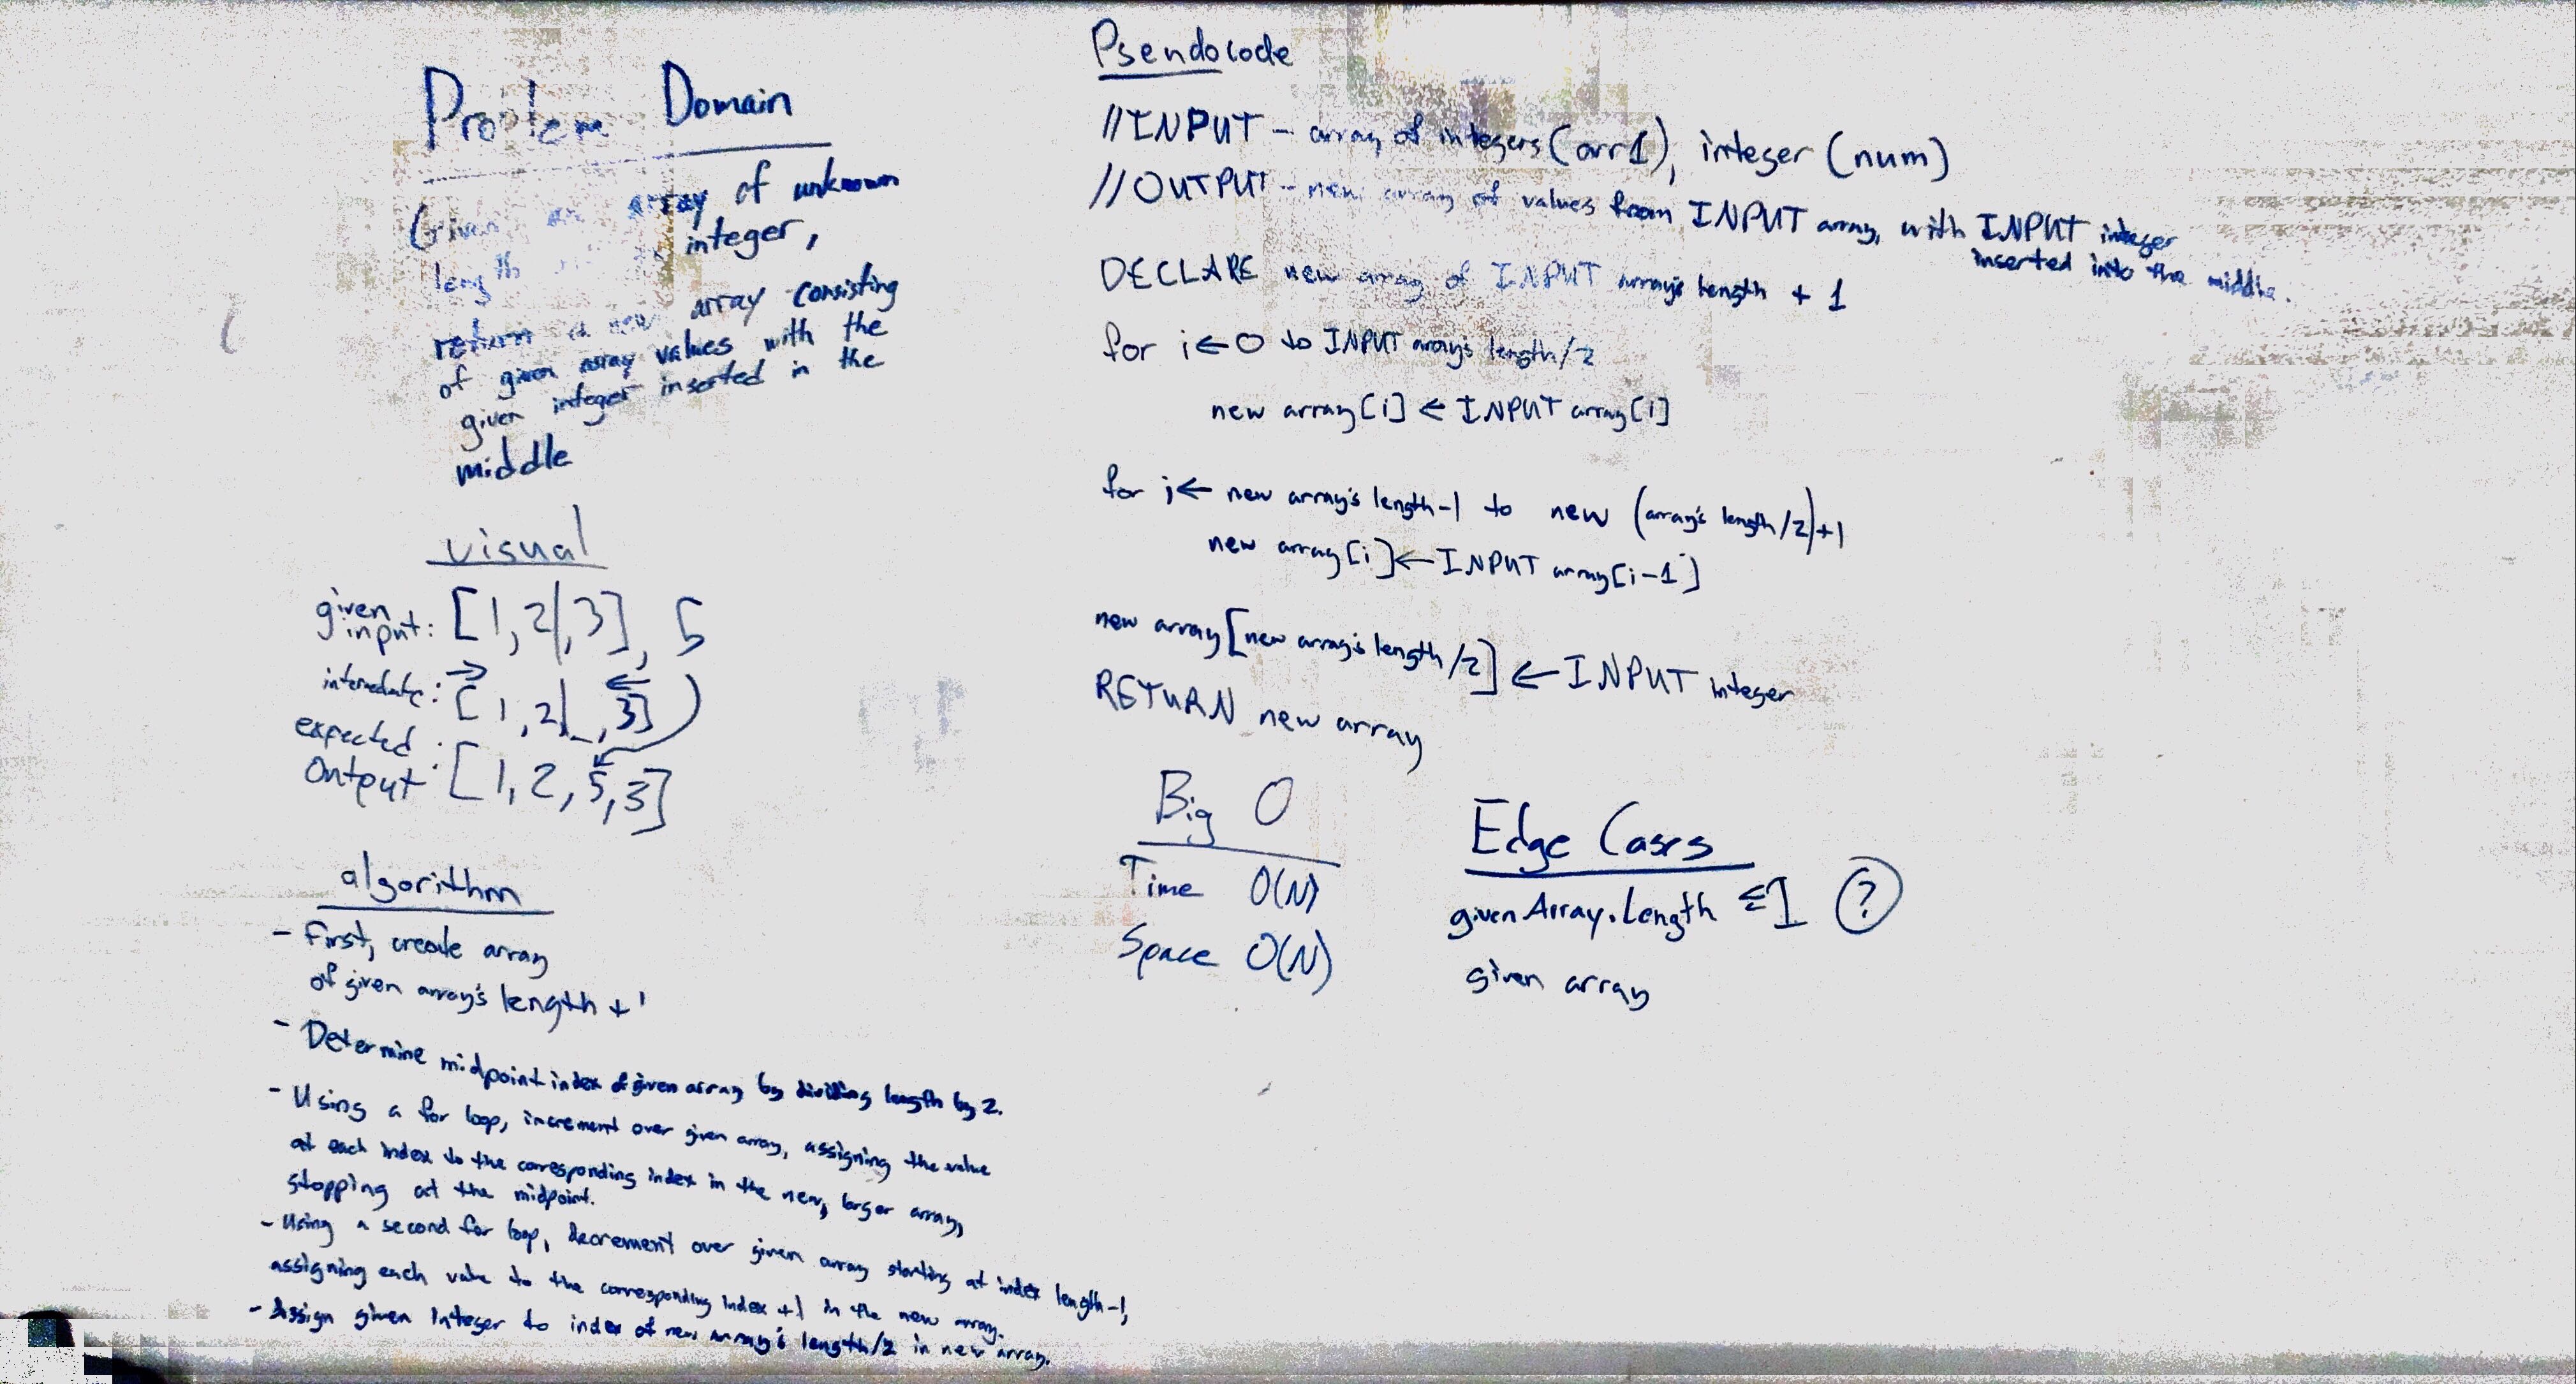 Problem Domain
Given an array of unknown
length integer,
return a new array consisting
of given array values with the
given integer inserted in the
middle
visual
given input: [1,2|,3], 5
intermediate: [1,2|_,3]
expected output: [1,2,5,3]
algorithm
- First, create array
of given array's length +1
- Determine midpoint index of given array by dividing length by 2.
- Using a for loop, increment over given array, assigning the value
at each index to the corresponding index in the new, larger array,
stopping at the midpoint.
- Using a second for loop, decrement over given array starting at index length-1,
assigning each value to the corresponding index +1 in the new array.
- Assign given integer to index of new array's length/2 in new array.
Pseudocode
//INPUT - array of integers (arr1), integer (num)
//OUTPUT - new array of values from INPUT array, with INPUT integer
inserted into the middle.
DECLARE new array of INPUT array's length + 1
for i ← 0 to INPUT array's length/2
new array[i] ← INPUT array[i]
for i ← new array's length-1 to new (array's length/2)+1
new array[i] ← INPUT array[i-1]
new array[new array's length/2] ← INPUT integer
RETURN new array
Big O
Time O(N)
Space O(N)
Edge Cases
givenArray.Length ≤1 ?
given array